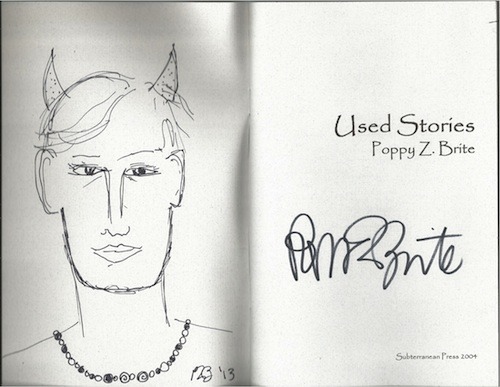 PZB '13
Used Stories
Poppy Z. Brite
Poppy Z Brite
Subterranean Press 2004